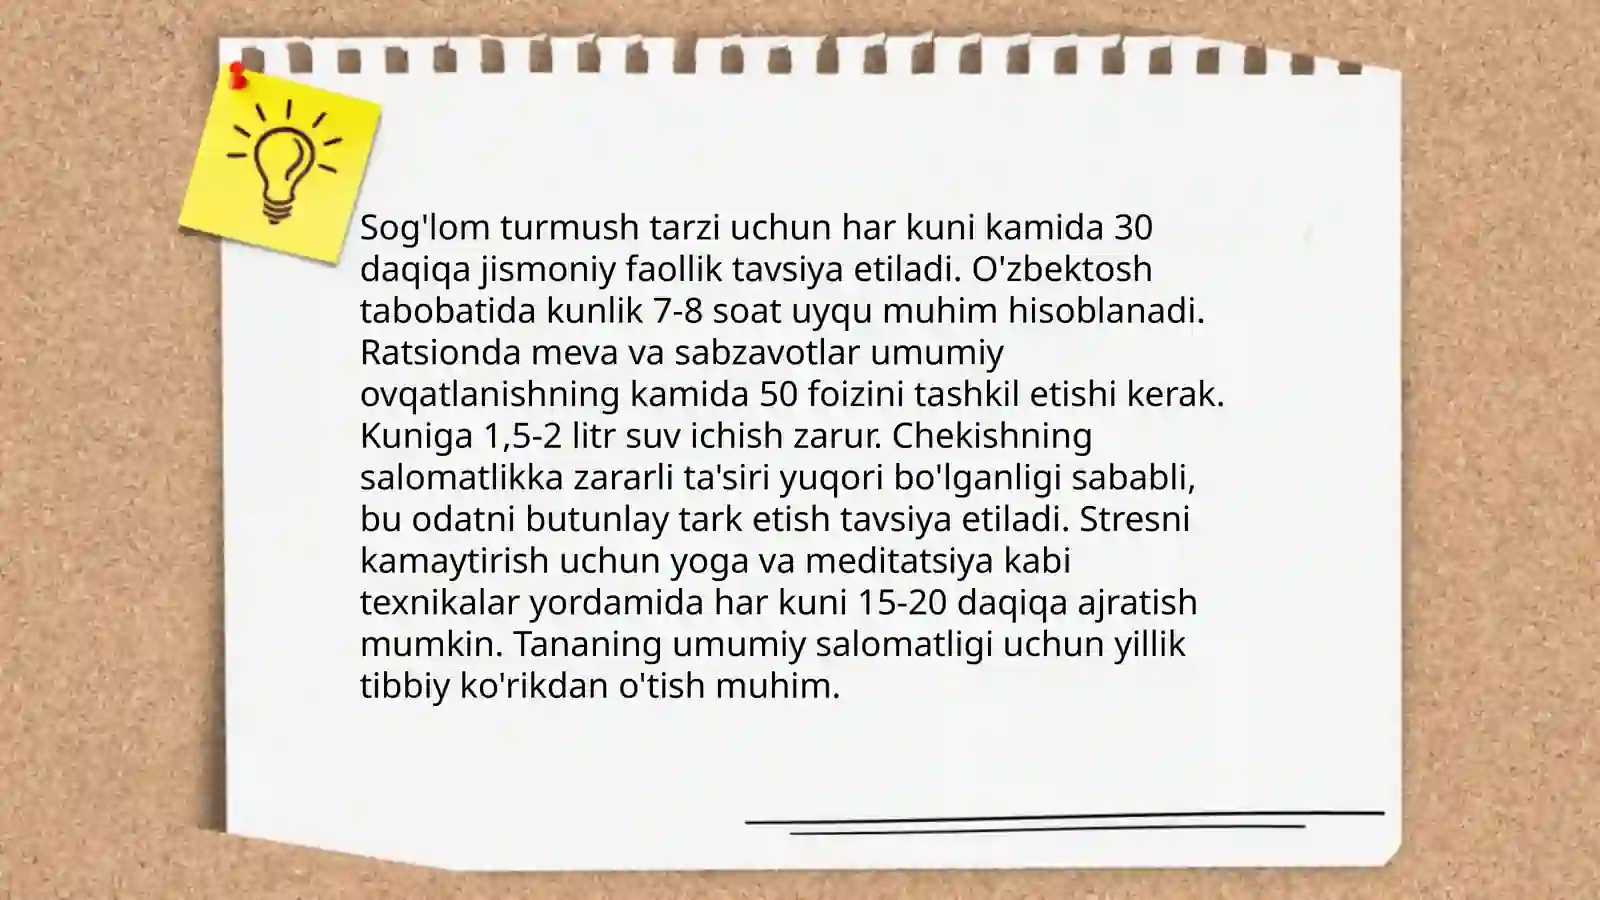 Sog'lom turmush tarzi uchun har kuni kamida 30
daqiqa jismoniy faollik tavsiya etiladi. O'zbektosh
tabobatida kunlik 7-8 soat uyqu muhim hisoblanadi.
Ratsionda meva va sabzavotlar umumiy
ovqatlanishning kamida 50 foizini tashkil etishi kerak.
Kuniga 1,5-2 litr suv ichish zarur. Chekishning
salomatlikka zararli ta'siri yuqori bo'lganligi sababli,
bu odatni butunlay tark etish tavsiya etiladi. Stresni
kamaytirish uchun yoga va meditatsiya kabi
texnikalar yordamida har kuni 15-20 daqiqa ajratish
mumkin. Tananing umumiy salomatligi uchun yillik
tibbiy ko'rikdan o'tish muhim.